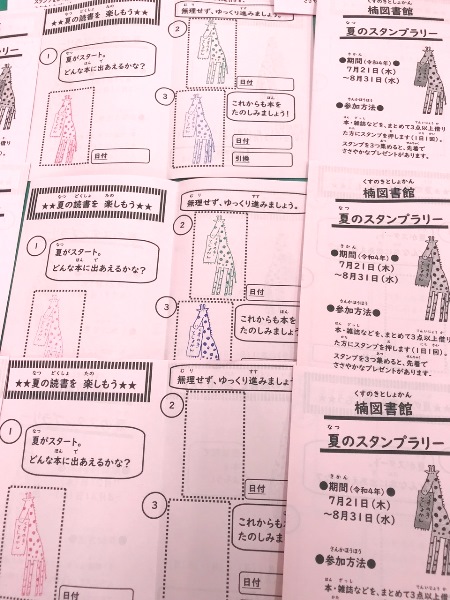 ★★夏の読書を 楽しもう★★
無理せず、ゆっくり進みましょう。
①
夏がスタート。
どんな本に出あえるかな?
日付
②
日付
③
これからも本を
たのしみましょう!
日付
引換
くすのきとしょかん
楠図書館
なつ
夏のスタンプラリー
きかん
●期間(令和4年)●
7月21日(木)
~8月31日(水)
さんかほうほう
●参加方法●
本・雑誌などを、まとめて3点以上借り
た方にスタンプを押します(1日1回)。
スタンプを3つ集めると、先着で
ささやかなプレゼントがあります。
なつ どくしょ たの
★★夏の読書を 楽しもう★★
むり すす
無理せず、ゆっくり進みましょう。
①
なつ
夏がスタート。
ほん で
どんな本に出あえるかな?
②
日付
③
ほん
これからも本を
たのしみまし
くすのきとしょかん
楠図書館
なつ
夏のスタンプラリー
きかん
●期間(令和4年)●
7月21日(木)
~8月31日(水)
さんかほうほう
●参加方法●
本・雑誌などを、まとめて3点以上借り
た方にスタンプを押します(1日1回)。
スタンプを3つ集めると、先着で
ささやかなプレゼントがあります。
なつ どくしょ たの
★★夏の読書を 楽しもう★★
むり すす
無理せず、ゆっくり進みましょ
①
なつ
夏がスタート。
ほん で
どんな本に出あえるかな?
日付
②
日付
③
これからも
たのしみ
くすのきとしょかん
楠図書館
なつ
夏のスタンプラリー
きかん
●期間(令和4年)●
7月21日(木)
~8月31日(水)
さんかほうほう
●参加方法●
ほん ざっし
本・雑誌などを、まとめて3点以